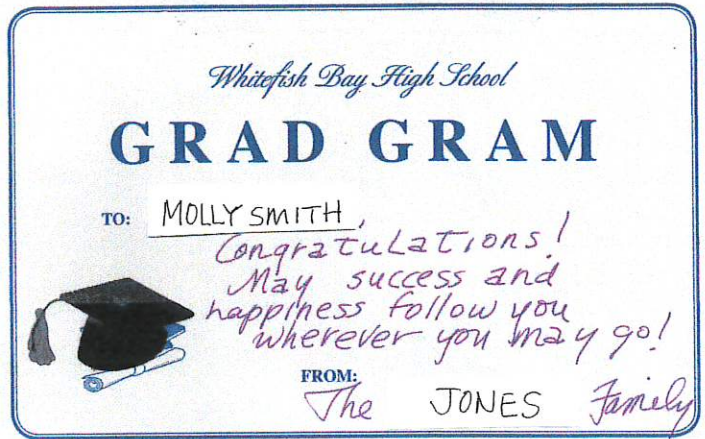 Whitefish Bay High School
GRAD GRAM
TO: MOLLY SMITH,
Congratulations!
May success and
happiness follow you
wherever you may go!
FROM:
The JONES Family